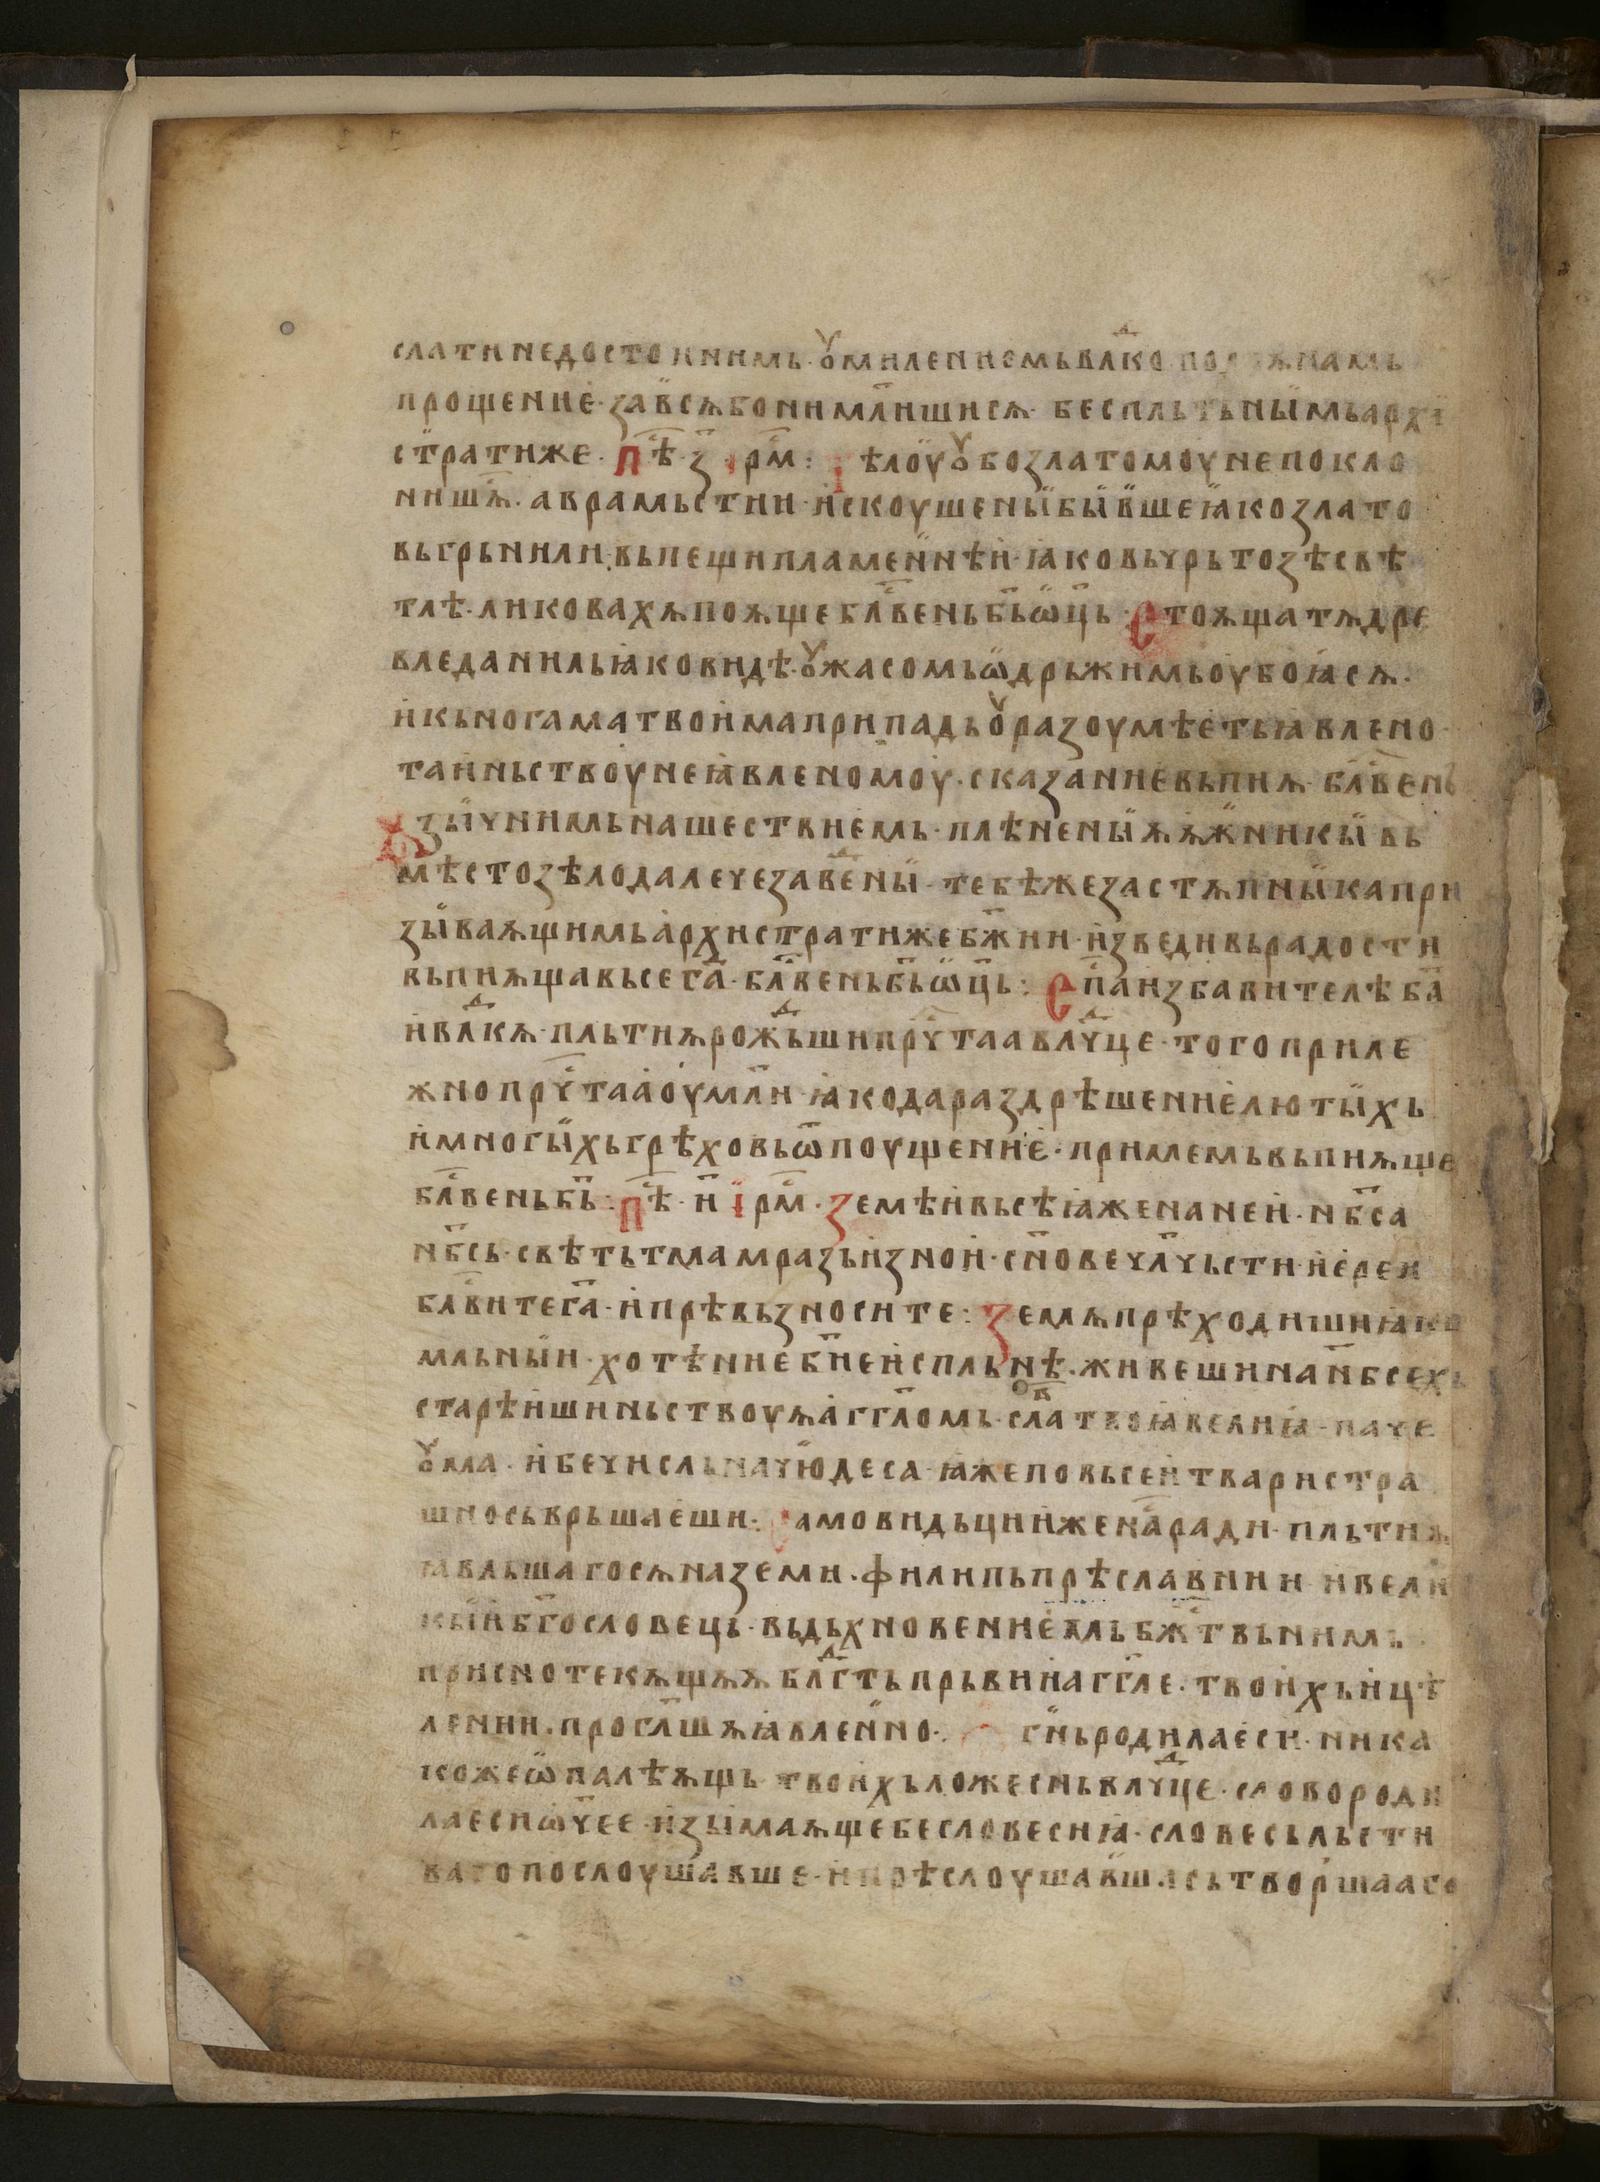 слати недостоинимь · ꙋмилениемь влⷣко под намь
прощение · за вьсѧ бо нимл҃ишисѧ · бесплътныимь архи
стратиже · пⷭ҇ѣ · з҃ · ірⷨм : тѣлоу ꙋбо златомоу не покло
ниш҃ѫ · аврамьстии · искоушены бывше ꙗко злато
вь грьнили · вь пещи пламеннѣи · ꙗко вь чрьтозѣ свѣ
тлѣ · ликовахѫ поѫще блⷭ҇вень б҃ь ѿц҃ь · Стоѫща тѧ дре
вле данииль ꙗко видѣ · ꙋжасомь ѡдрьжимь оубоꙗсѧ ·
и кь ногама твоима припадь ꙋразоумѣеть ꙗвлено ·
таиньствоу неꙗвленомоу · сказание вьпиѫ · блⷭ҇вень
Ѧзычнимь нашествиемь · плѣненыѫ ѫжникы вь
мѣсто зѣло далече заве҃ны · тебѣ же застѫпныка при
зываѫщимь архистратиже бж҃ии · изведи вь радости
вьпиѫща вьсег҃а · блⷭ҇вень б҃ь ѿц҃ь : Сп҃а избавителѣ б҃а
и влⷣкѫ · пльтиѫ рождьши прⷭ҇чтаа влⷣчце · того приле
жно прⷭ҇чтаа оумл҃и · ꙗко да раздрѣшение лютыхь
и многыхь грѣховь ѿпоущение · приемемь вьпиѫще
блⷭ҇вень б҃ь : пⷭ҇ѣ · и҃ ірⷨм · Земѣ и вьсѣ ꙗже на неи · нб҃са
нб҃сь · свѣть тма мразь и зной · сн҃ове чл҃чьсти · иереи
блⷭ҇вите г҃а · и прѣвьзносите : Землѫ прѣходиши ꙗко
мльныи · хотѣние б҃ие исплънѣ · живеши на нб҃сехь
старѣишиньствоуѫ агг҃ломь · сла҃ твоꙗ велиꙗ · паче
ꙋма · и бечисльна чюдеса · ꙗже по вьсеи твари стра
шно сьврьшаеши · Самовидьци иже на҃ ради · пльтиѫ
ꙗвльшагосѧ на земи · филипь прѣславнии и вели
кыи б҃гословець · вьдьхновениемь бжⷭ҇твьнимь
присно текѫщѫѫ блгⷣть прьвии агг҃ле · твоихь ицѣ
лении · прогл҃шѫ ꙗвленно · гнь родила еси · ника
коже ѡпалѣѫщь твоихь ложеснь влⷣчце · слово роди
ла еси ѡ҃чее · изымаѫще бесловесиꙗ · словесь льсти
ваго послоушавше · и прѣслоушавша сьтворшааго